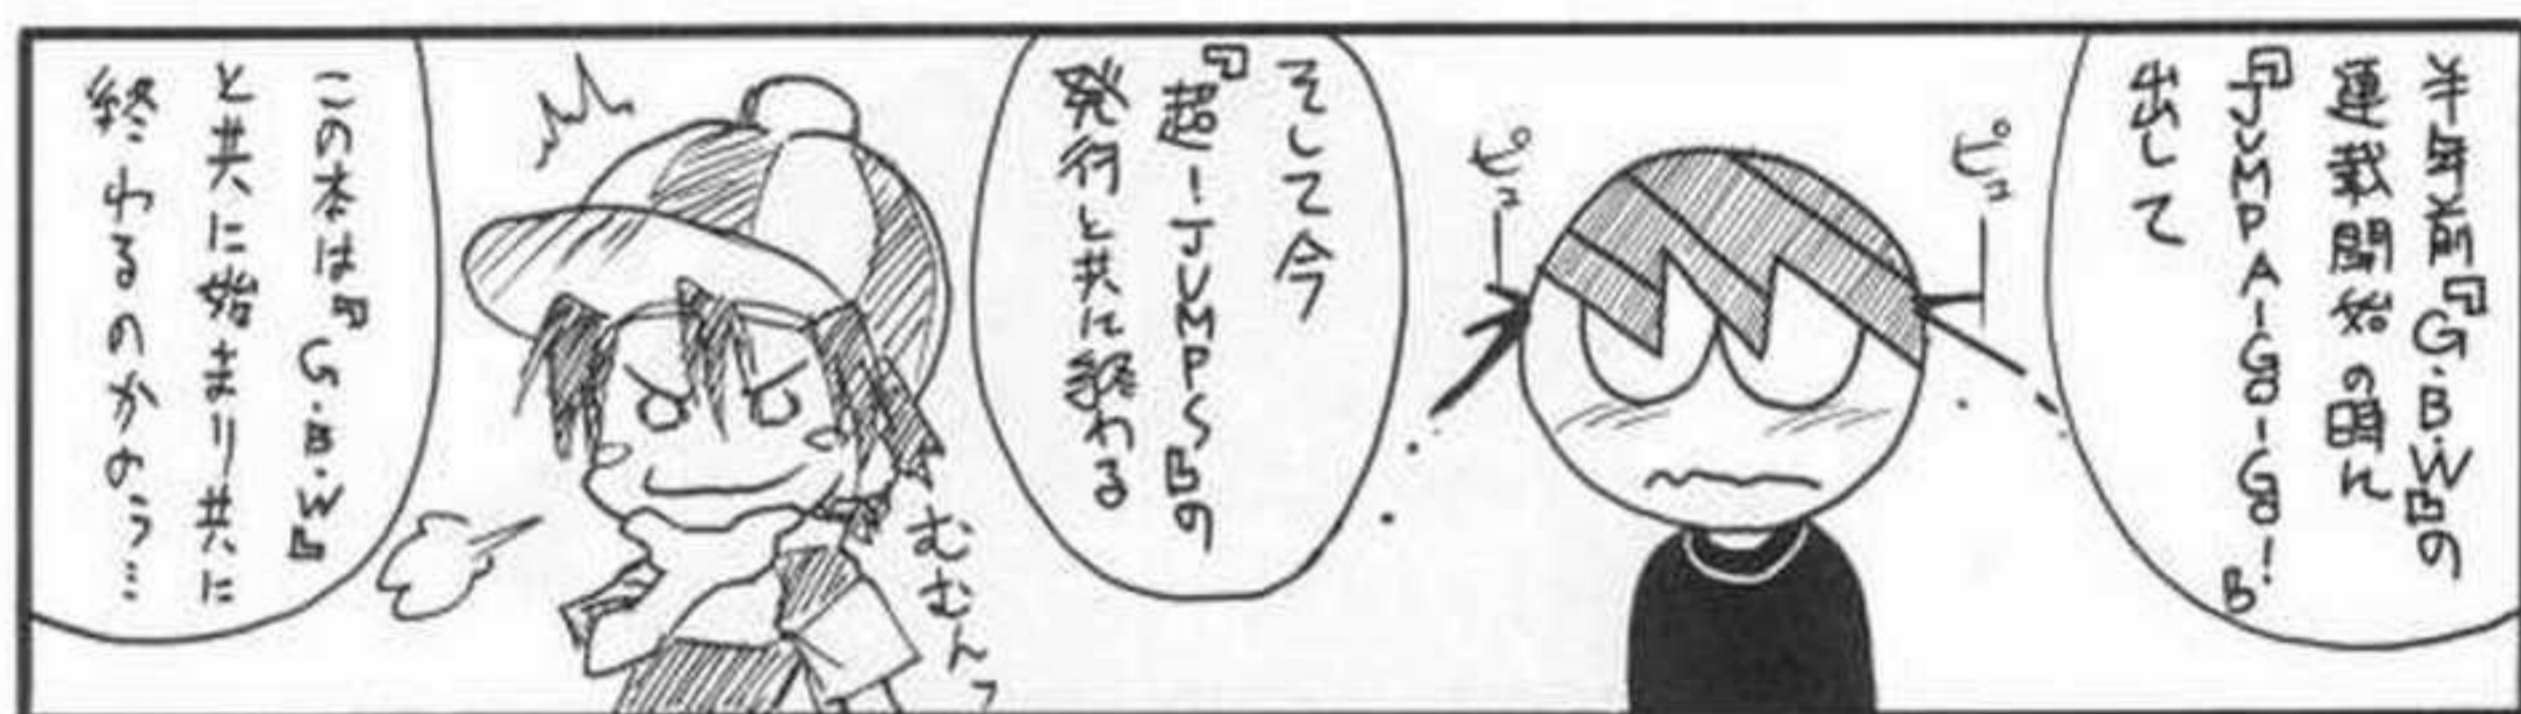 半年前『G.B.W』の
連載開始の時に
『JUMP A-Ga-Ga!』
出して
ピュー
ピュー
そして今
『超!JUMPS』の
発行と共に終わる
むむんっ
この本は『G.B.W』
と共に始まり共に
終わるのかのう…